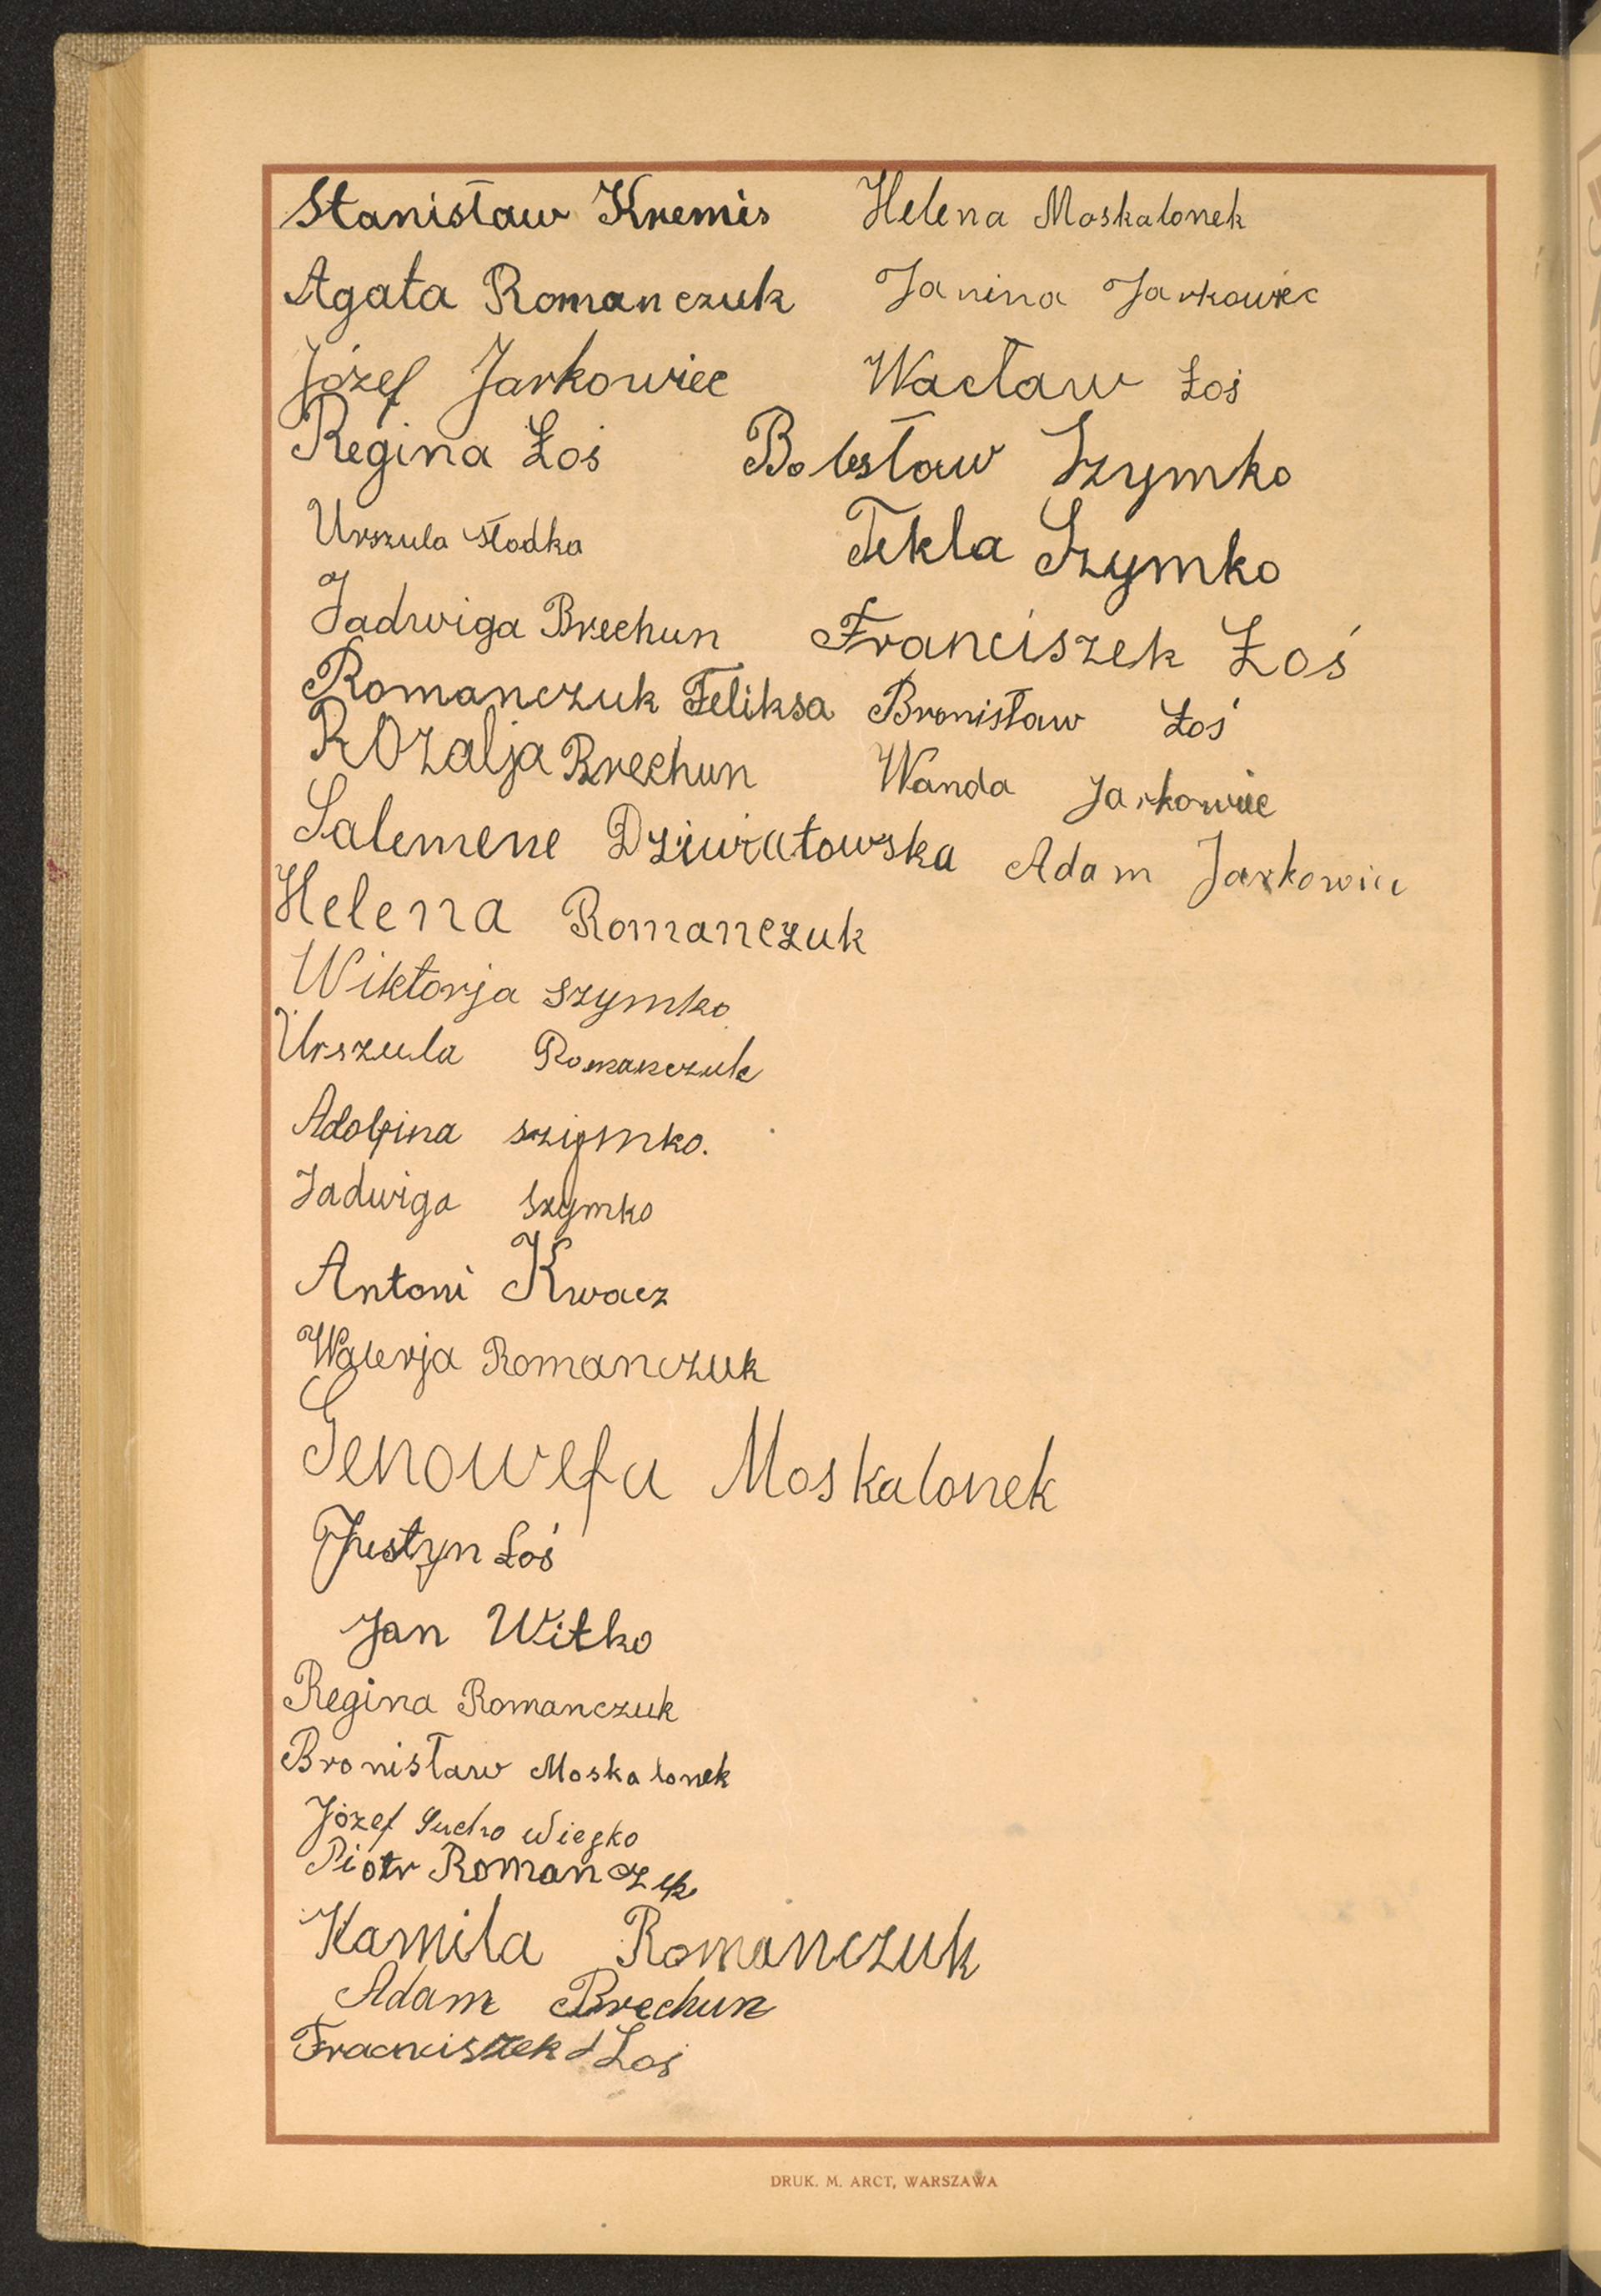 Stanisław Kremis
Agata Romanczuk
Józef Jarkowiec
Regina Łoś
Urszula Słodka
Jadwiga Brechun
Romanczuk Feliksa
ROzalja Brechun
Salemene Dziwiatowska
Helena Romanczuk
Wiktorja szymko
Urszula Romanczuk
Adolfina szymko.
Jadwiga Szymko
Antoni Kwacz
Walerja Romanczuk
Genowefa Moskalonek
Justyn Łoś
Jan Witko
Regina Romanczuk
Bronisław Moskalonek
Józef Sucho
Piotr Romanczuk
Kamila Romanczuk
Adam Brechun
Łoś
Helena Moskalonek
Janina Jarkowiec
Wacław Łoś
Bolesław Szymko
Tekla Szymko
Franciszek Łoś
Bronisław Łoś
Wanda Jarkowiec
Adam Jarkowiec
DRUK. M. ARCT, WARSZAWA